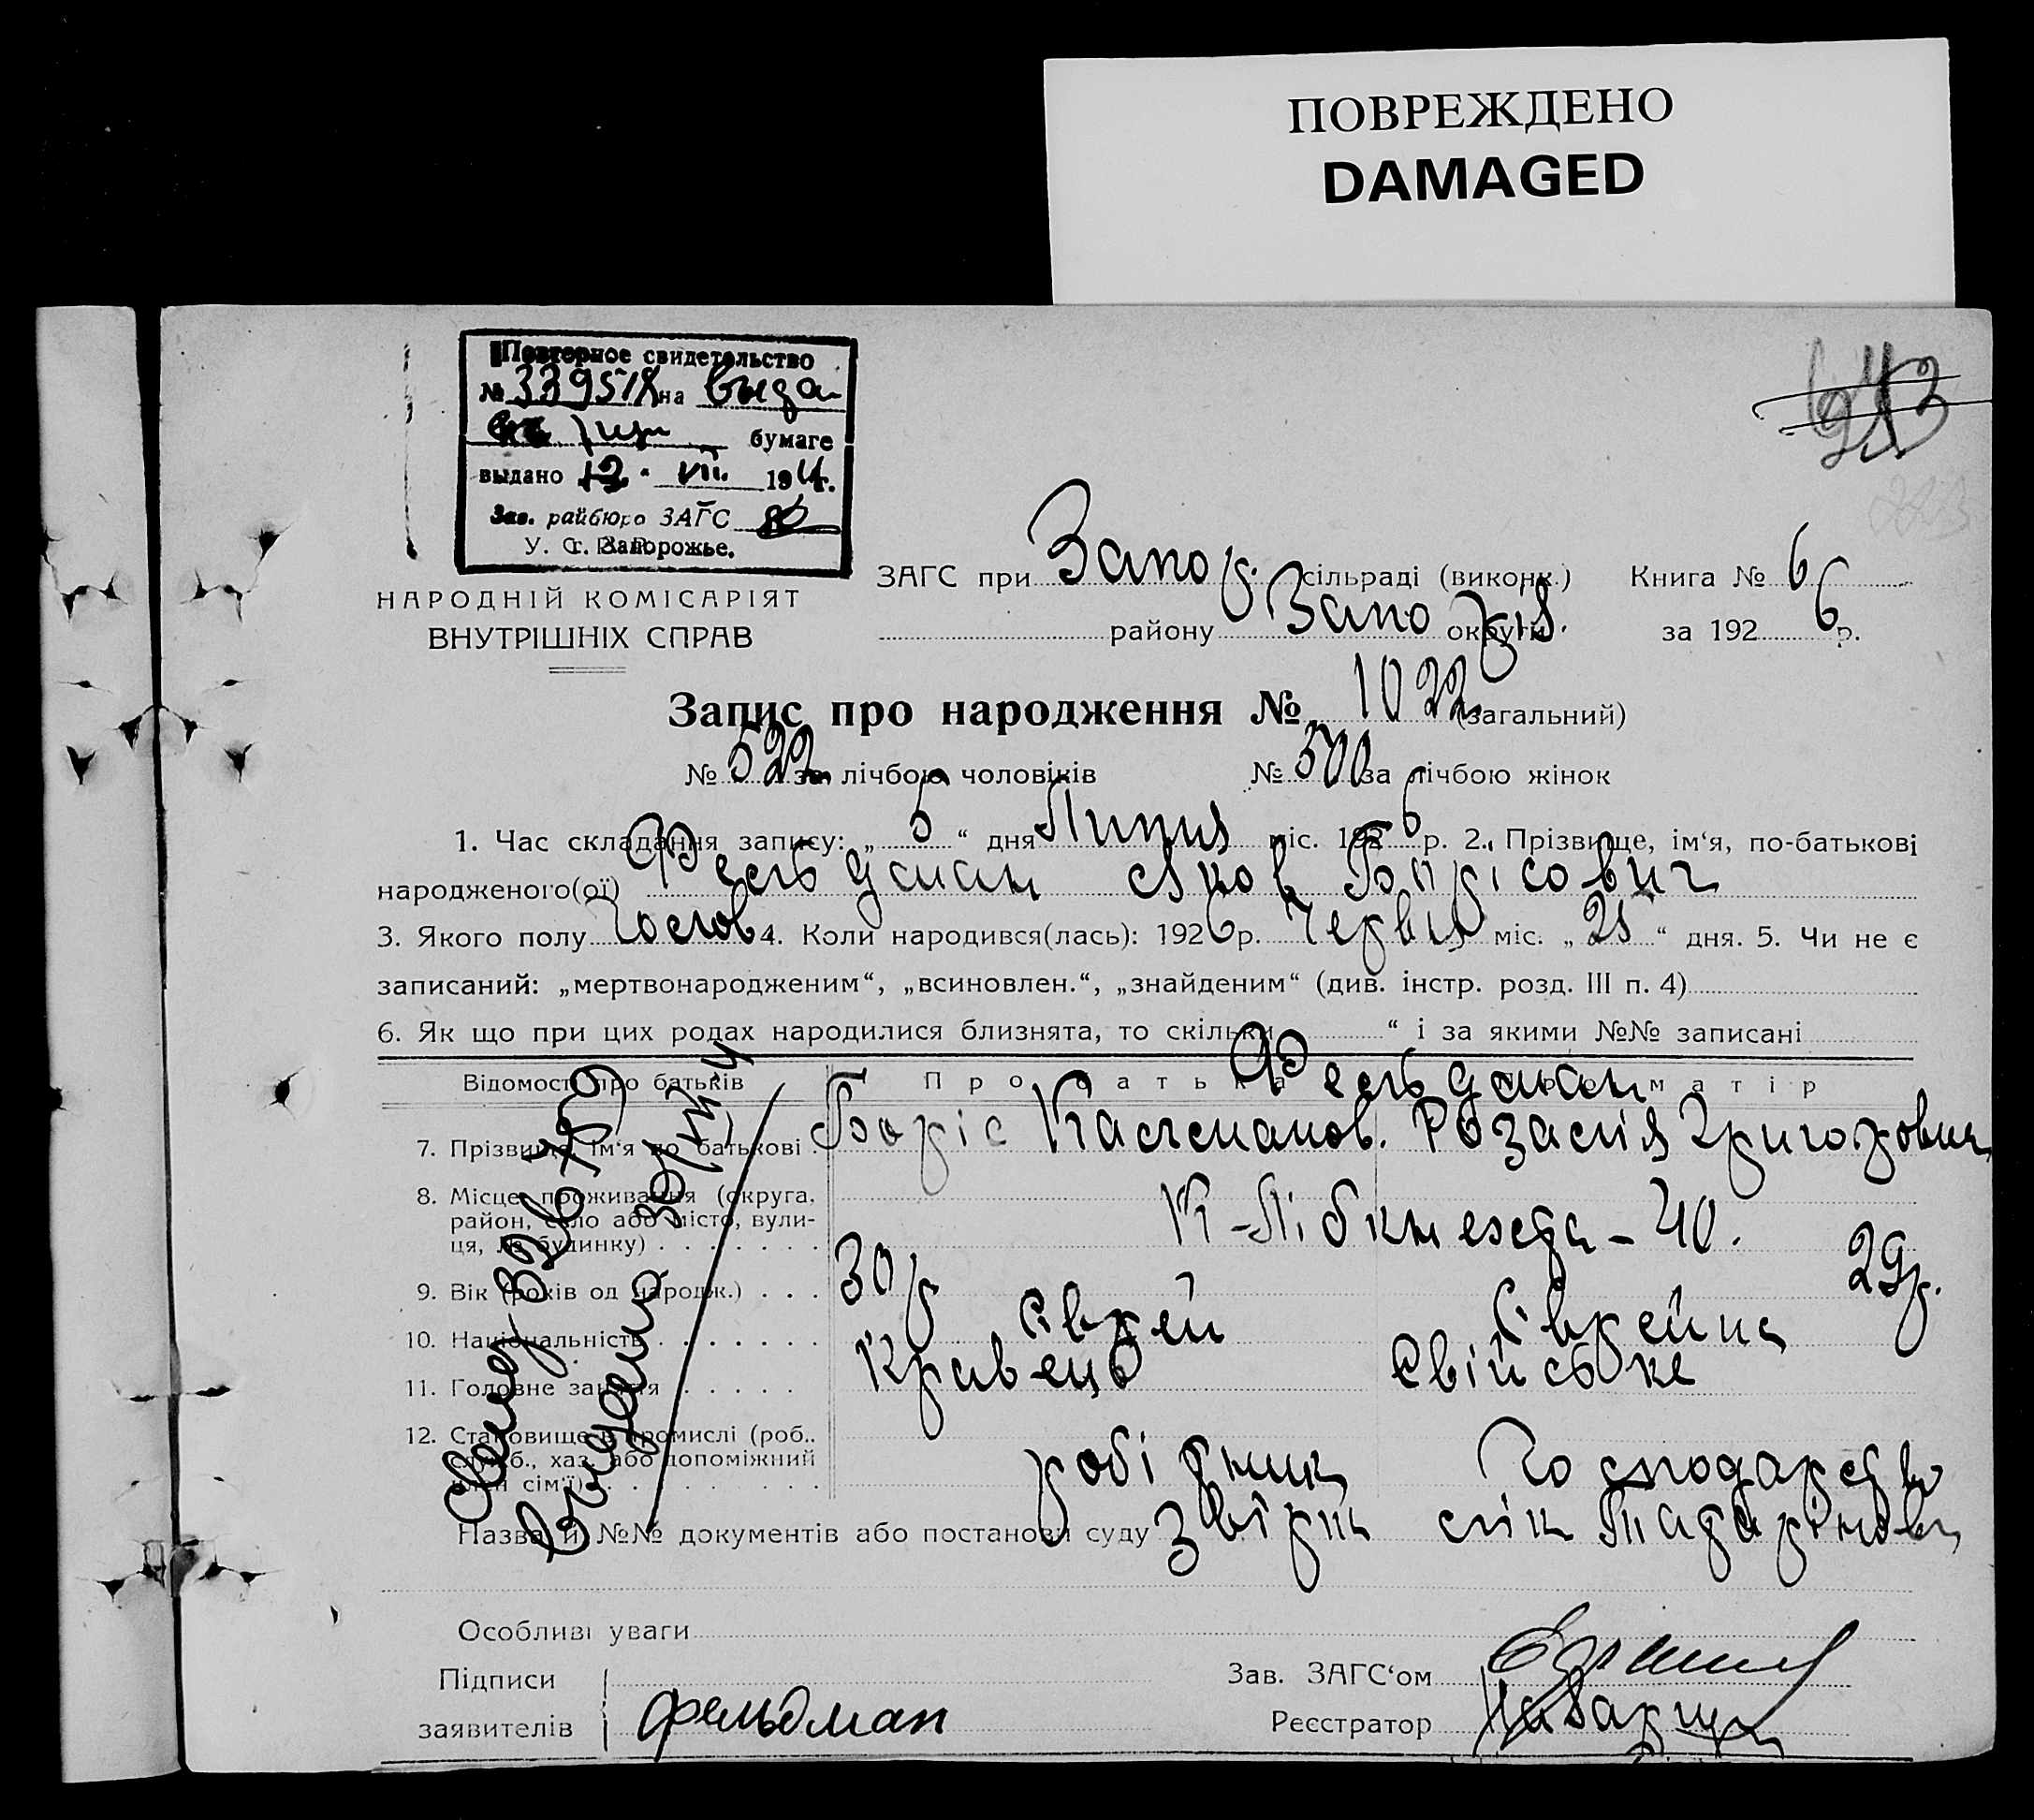 ПОВРЕЖДЕНО
DAMAGED
Повторное свидетельство
№ на
бумаге
выдано VII. 194 г.
Зав. райбюро ЗАГС
г. Запорожье.
НАРОДНІЙ КОМІСАРІЯТ
ВНУТРІШНІХ СПРАВ
ЗАГС при Запор. сільраді (викон.) Книга № 6
району Запоріз. округи за 1926 р.
Запис про народження № 1022 (загальний)
№ 522 за лічбою чоловіків № 500 за лічбою жінок
1. Час складання запису: „ 5 “ дня Липня міс. 1926 р. 2. Прізвище, ім‘я, по-батькові
народженого(ої) Фельдман Яков Борісович
3. Якого полу Чолов 4. Коли народився(лась): 1926 р. Червня міс. „ 25 “ дня. 5. Чи не є
записаний: „мертвонародженим“, „всиновлен.“, „знайденим“ (див. інстр. розд. III п. 4)
6. Як що при цих родах народилися близнята, то скільки “ і за якими №№ записані
Відомості про батьків Про батька Про матір
Фельдман
7. Прізвище, ім‘я по батькові . Боріс Калманов. Розалія Григоровна
8. Місце проживання (округа,
район, село або місто, вули-
ця, № будинку) . . . . . . . К-Лібкнехта - 40.
9. Вік (років од народж.) . . . 30 р 29 р.
10. Національність . . . . . . . Єврей Єврейка
11. Головне заняття . . . . . Кравець Свійське
12. Становище в промислі (роб.,
служб., хаз. або допоміжний
член сім‘ї) . . . . . . . . . робітник господарство
Назва й №№ документів або постанови суду
Особливі уваги
Підписи
заявителів
фельдман
Зав. ЗАГС‘ом
Реєстратор